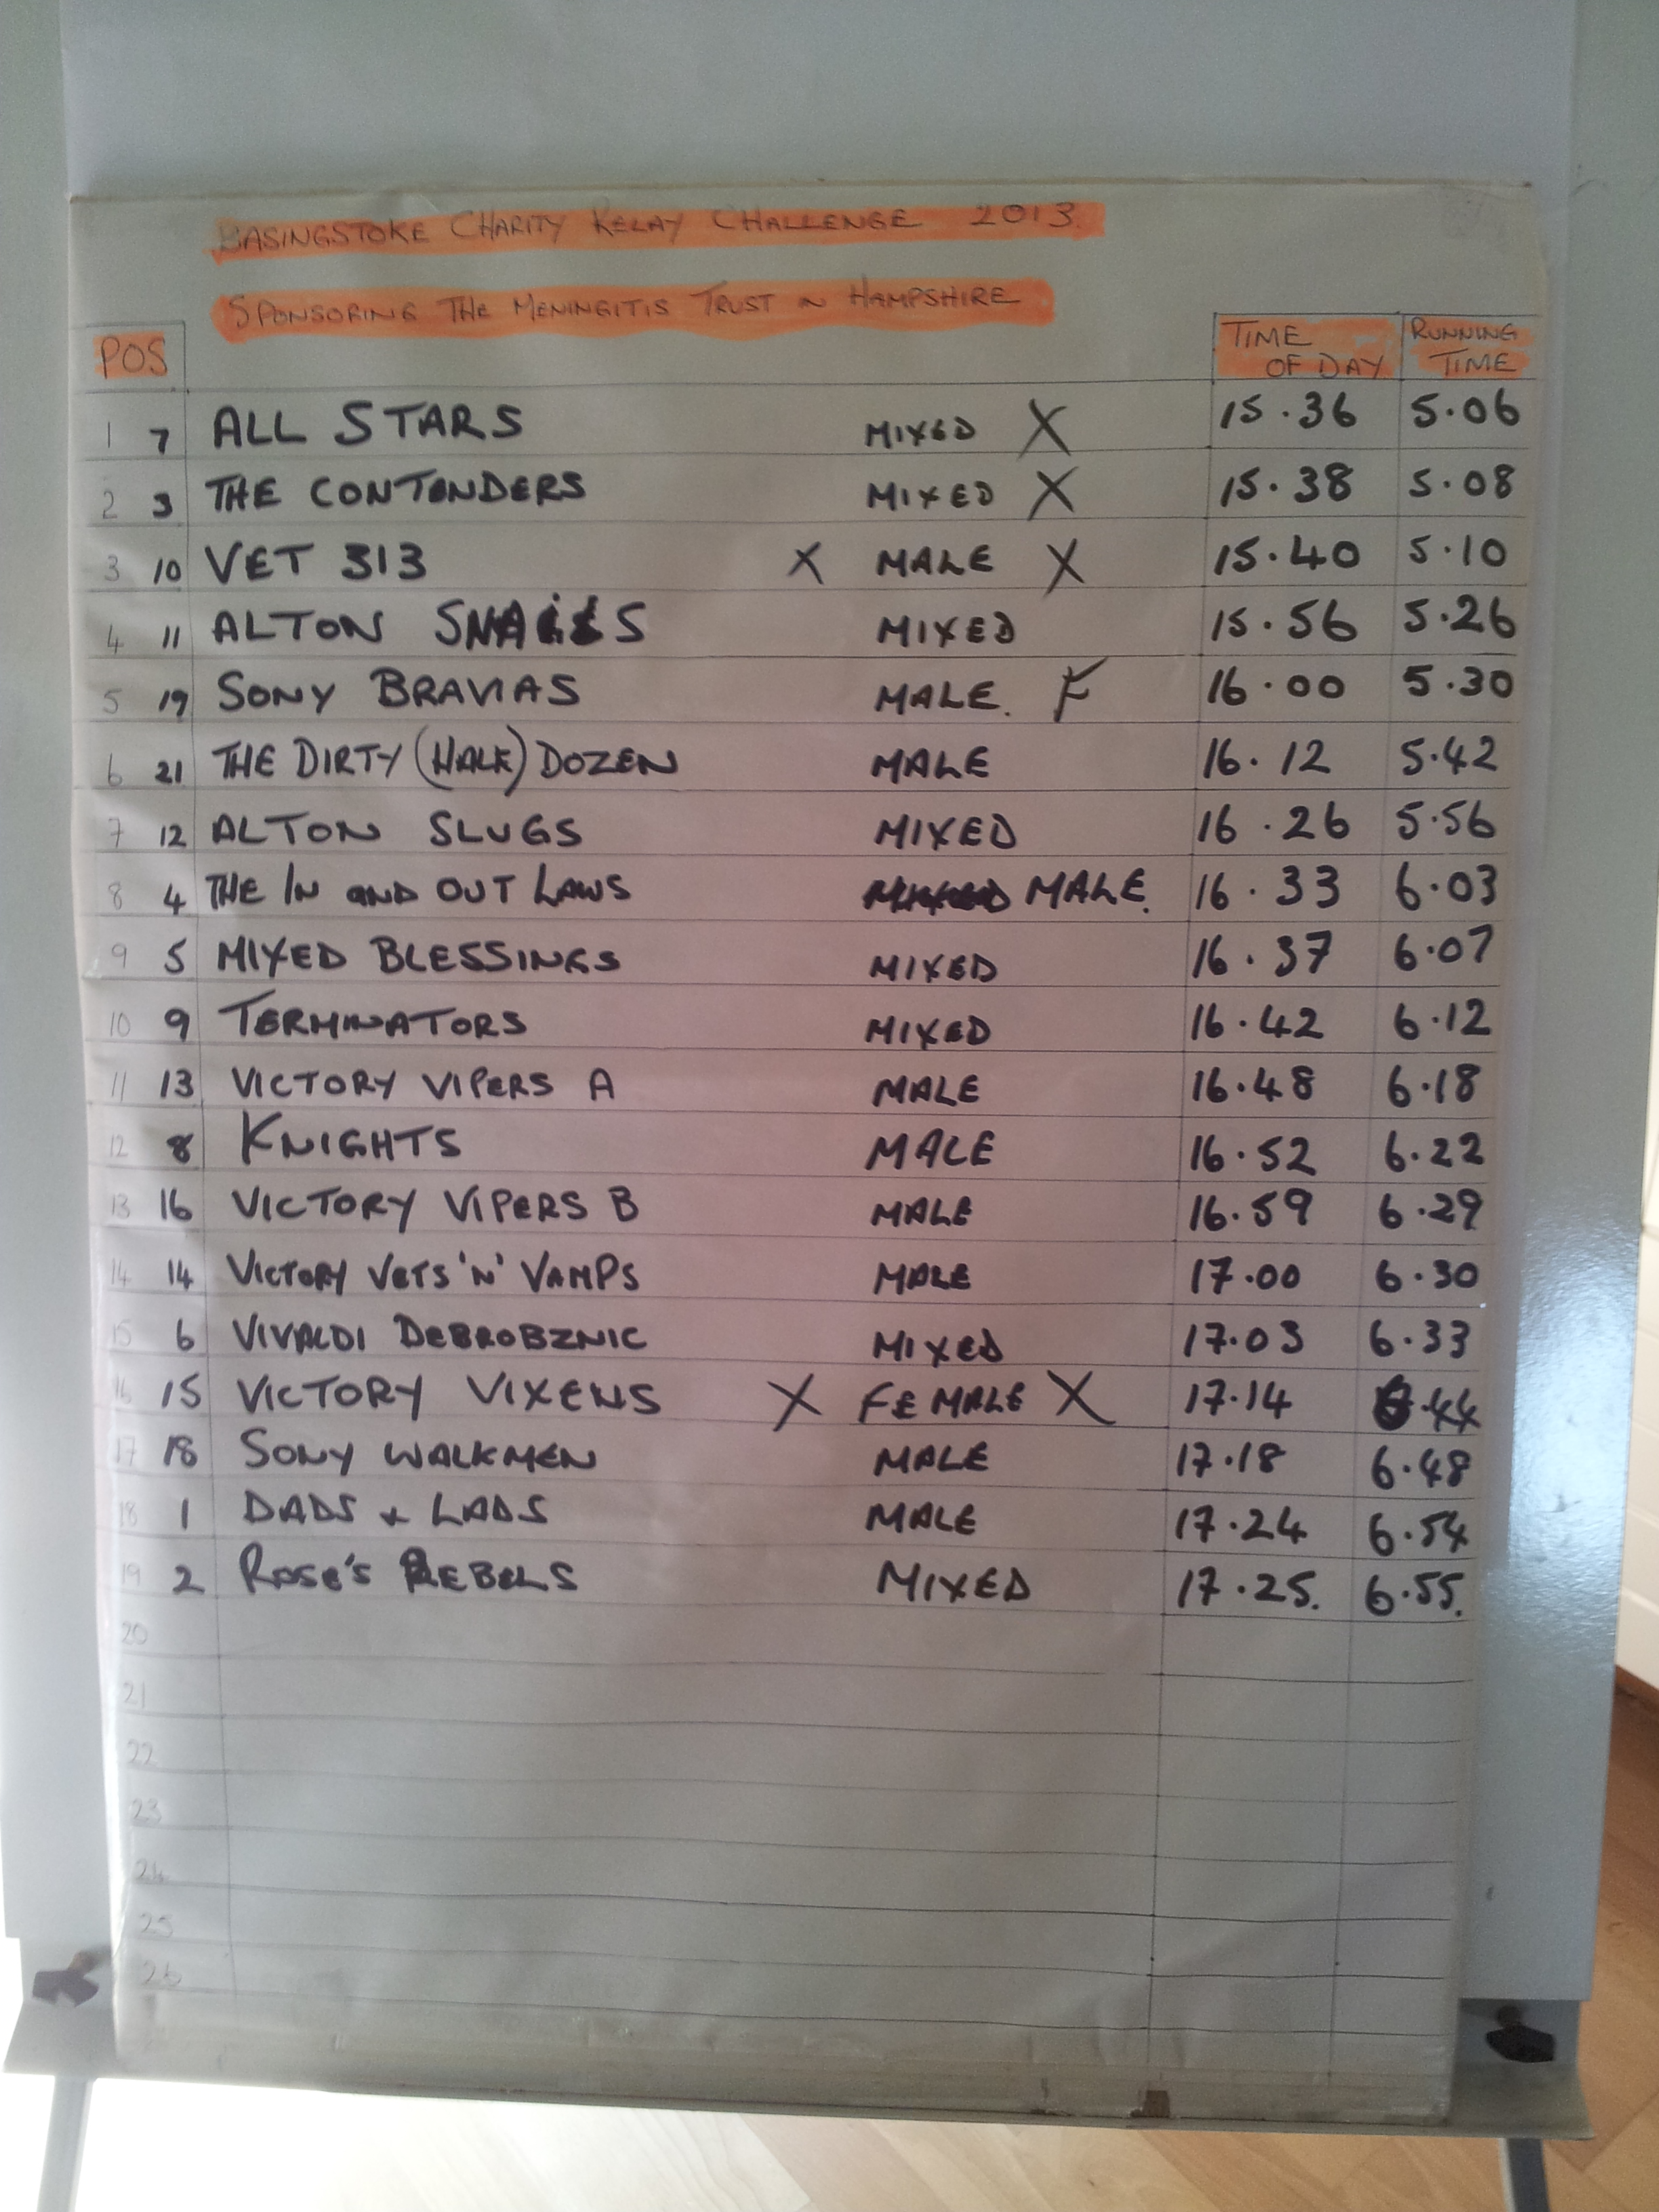 BASINGSTOKE CHARITY RELAY CHALLENGE 2013.
SPONSORING THE MENINGITIS TRUST IN HAMPSHIRE
POS TIME OF DAY RUNNING TIME
1 7 ALL STARS MIXED X 15.36 5.06
2 3 THE CONTENDERS MIXED X 15.38 5.08
3 10 VET 313 X MALE X 15.40 5.10
4 11 ALTON SNAILS MIXED 15.56 5.26
5 19 SONY BRAVIAS MALE. F 16.00 5.30
6 21 THE DIRTY (HALF) DOZEN MALE 16.12 5.42
7 12 ALTON SLUGS MIXED 16.26 5.56
8 4 THE IN AND OUT LAWS MALE. 16.33 6.03
9 5 MIXED BLESSINGS MIXED 16.37 6.07
10 9 TERMINATORS MIXED 16.42 6.12
11 13 VICTORY VIPERS A MALE 16.48 6.18
12 8 KNIGHTS MALE 16.52 6.22
13 16 VICTORY VIPERS B MALE 16.59 6.29
14 14 VICTORY VETS 'N' VAMPS MALE 17.00 6.30
15 6 VIVALDI DEBROBZNIC MIXED 17.03 6.33
16 15 VICTORY VIXENS X FEMALE X 17.14 6.44
17 18 SONY WALKMEN MALE 17.18 6.48
18 1 DADS + LADS MALE 17.24 6.54
19 2 ROSE'S REBELS MIXED 17.25. 6.55.
20
21
22
23
24
25
26